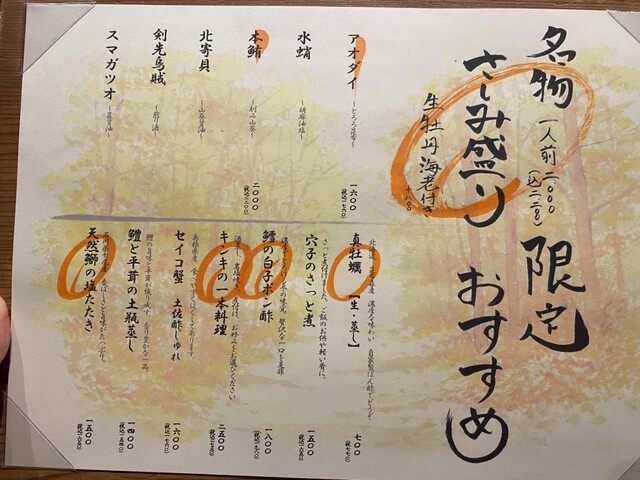 名物
さしみ盛り
一人前 二、〇〇〇
(込二、二〇〇)
生牡丹海老付き
十八〇
限定
おすすめ
アオダイ
一六〇〇
(税込一七六〇)
水蛸
〜胡麻油塩〜
本鮪
二〇〇〇
(税込二二〇〇)
北寄貝
剣先烏賊
〜煎り酒〜
スマガツオ
真牡蠣【生・蒸し】
七〇〇
(税込七七〇)
穴子のさっと煮
さっと煮付けました。ご飯のお供や軽い肴に。
一五〇〇
(税込一六五〇)
鱈の白子ポン酢
一八〇〇
(税込一九八〇)
キンキの一本料理
二五〇〇
(税込二七五〇)
セイコ蟹 土佐酢じゅれ
一六〇〇
(税込一七六〇)
鱧と平茸の土瓶蒸し
一四〇〇
(税込一五四〇)
天然鰤の塩たたき
一五〇〇
(税込一六五〇)